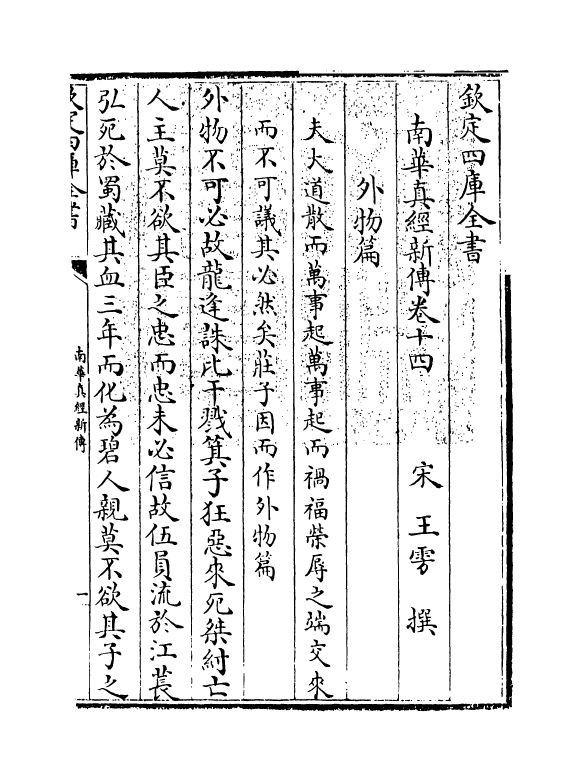 欽定四庫全書
南華真經新傳卷十四　宋　王雱　撰
外物篇
夫大道散而萬事起萬事起而禍福榮辱之端交來
而不可議其必然矣莊子因而作外物篇
外物不可必故龍逢誅比干戮箕子狂惡來死桀紂亡
人主莫不欲其臣之忠而忠未必信故伍員流於江萇
弘死於蜀藏其血三年而化為碧人親莫不欲其子之
欽定四庫全書
南華真經新傳
一